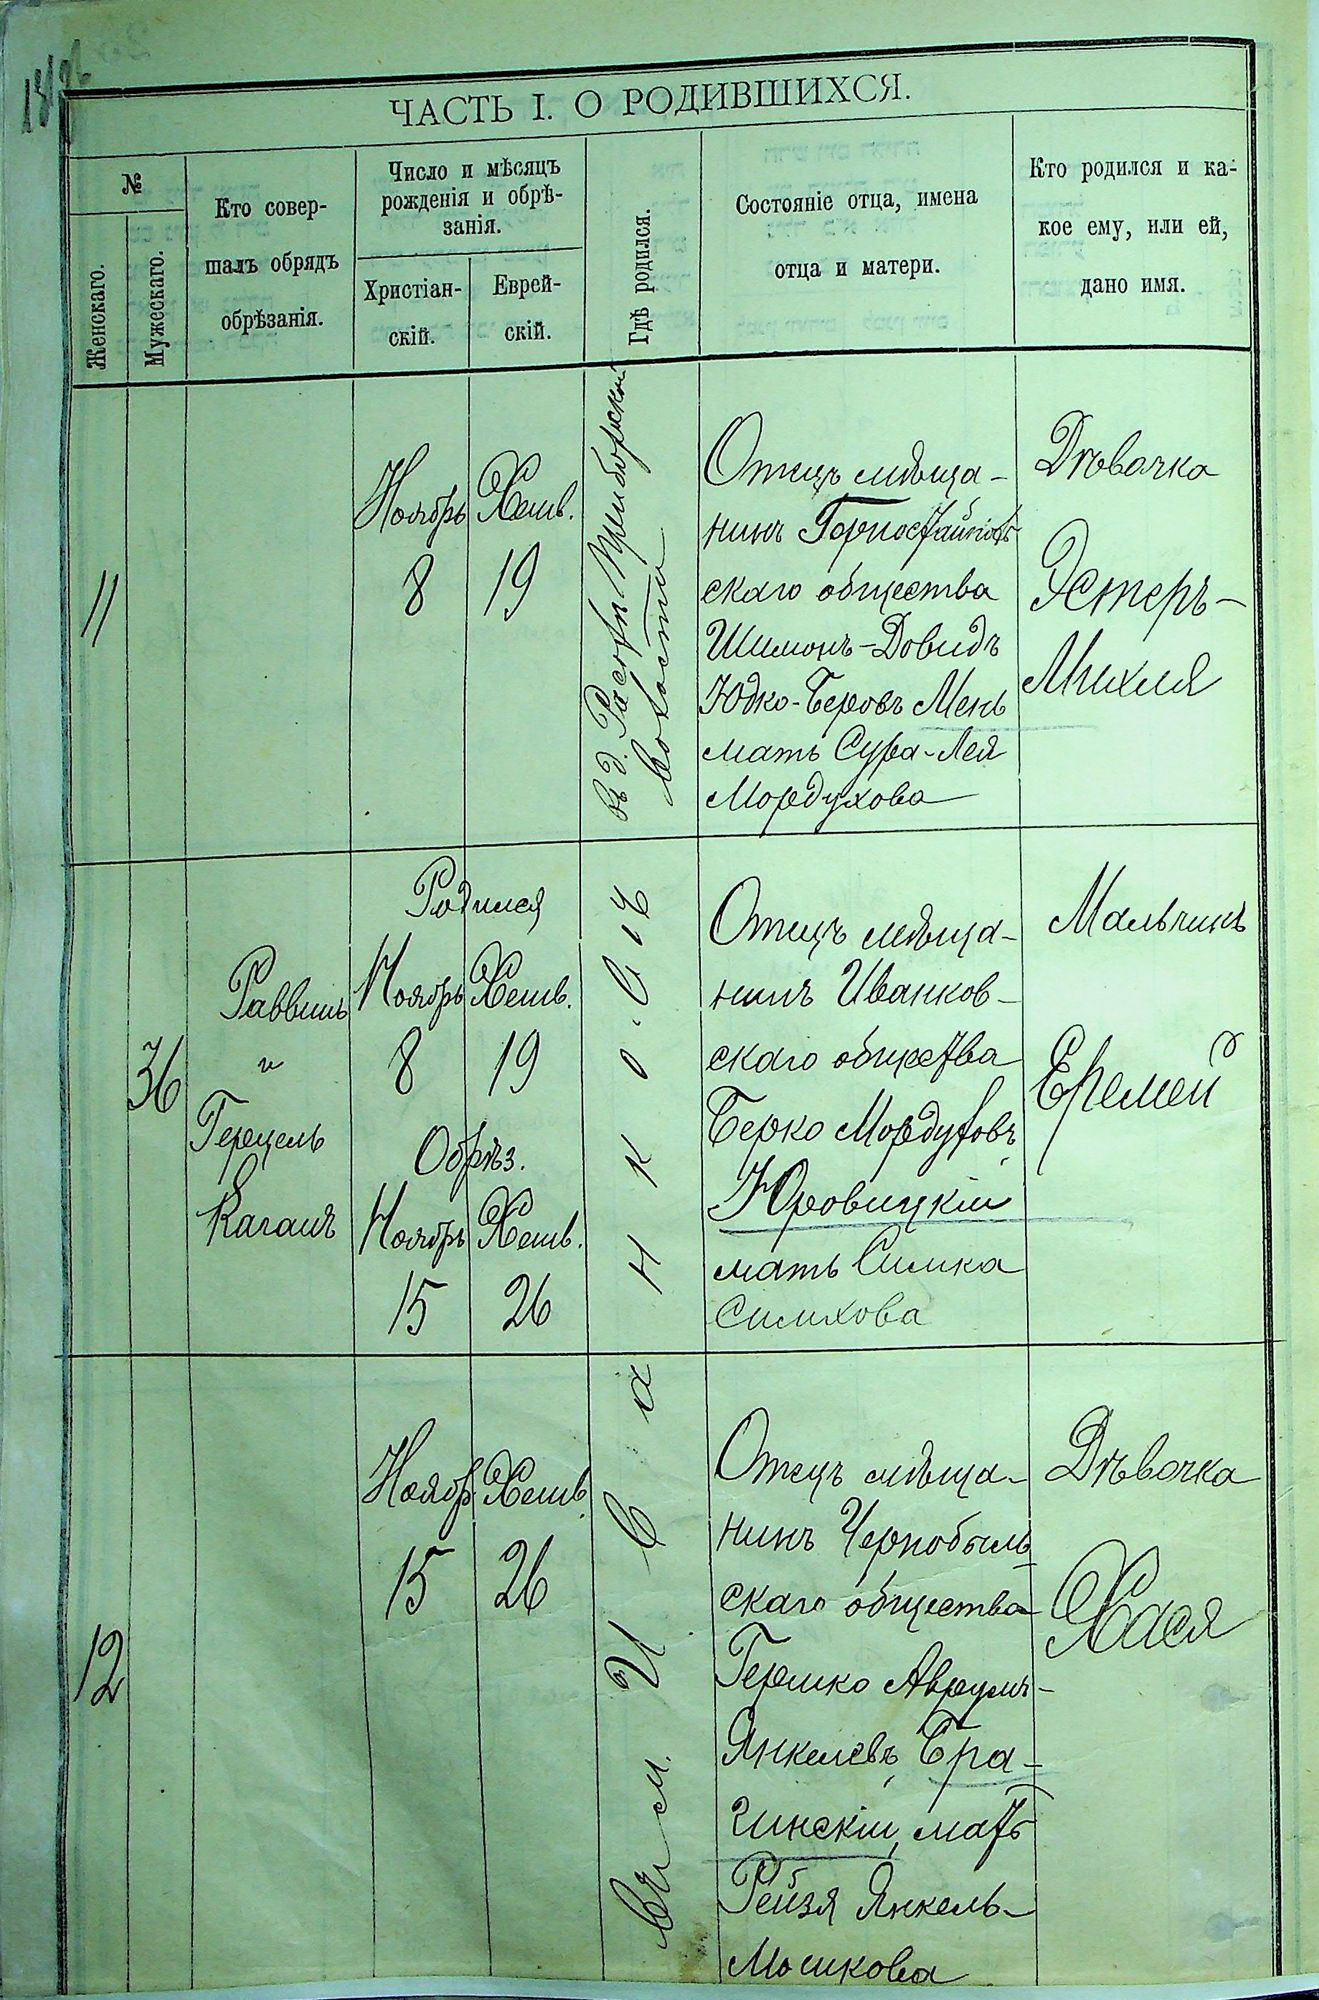 ЧАСТЬ I. О РОДИВШИХСЯ.
№
Женскаго.
Мужескаго.
Кто совер-
шалъ обрядъ
обрѣзанія.
Число и мѣсяцъ
рожденія и обрѣ-
занія.
Христіан-
скій.
Еврей-
скій.
Гдѣ родился.
Состояніе отца, имена
отца и матери.
Кто родился и ка-
кое ему, или ей,
дано имя.
11
Ноябрь
8
Хешв.
19
въ д. Расохѣ Приборской
волости
Отецъ мѣща-
нинъ Горностайполь
скаго общества
Шимонъ-Довидъ
Юдко-Беровъ Мень
мать Сура-Лея
Мордухова
Дѣвочка
Эстеръ-
Михля
36
Раввинъ
и
Герцель
Каганъ
Родился
Ноябрь Хешв.
8 19
Обрѣз.
Ноябрь Хешв.
15 26
Отецъ мѣща-
нинъ Иванков-
скаго общества
Берко Мордуховъ
Юровицкій
мать Симка
Симхова
Мальчикъ
Еремей
12
Ноябр Хешв
15 26
Въ м. Иванковѣ
Отецъ мѣща-
нинъ Чернобыль
скаго общества
Гершко Аврумъ-
Янкелевъ Бра-
гинскій, мать
Рейзя Янкель-
Мошкова
Дѣвочка
Хася